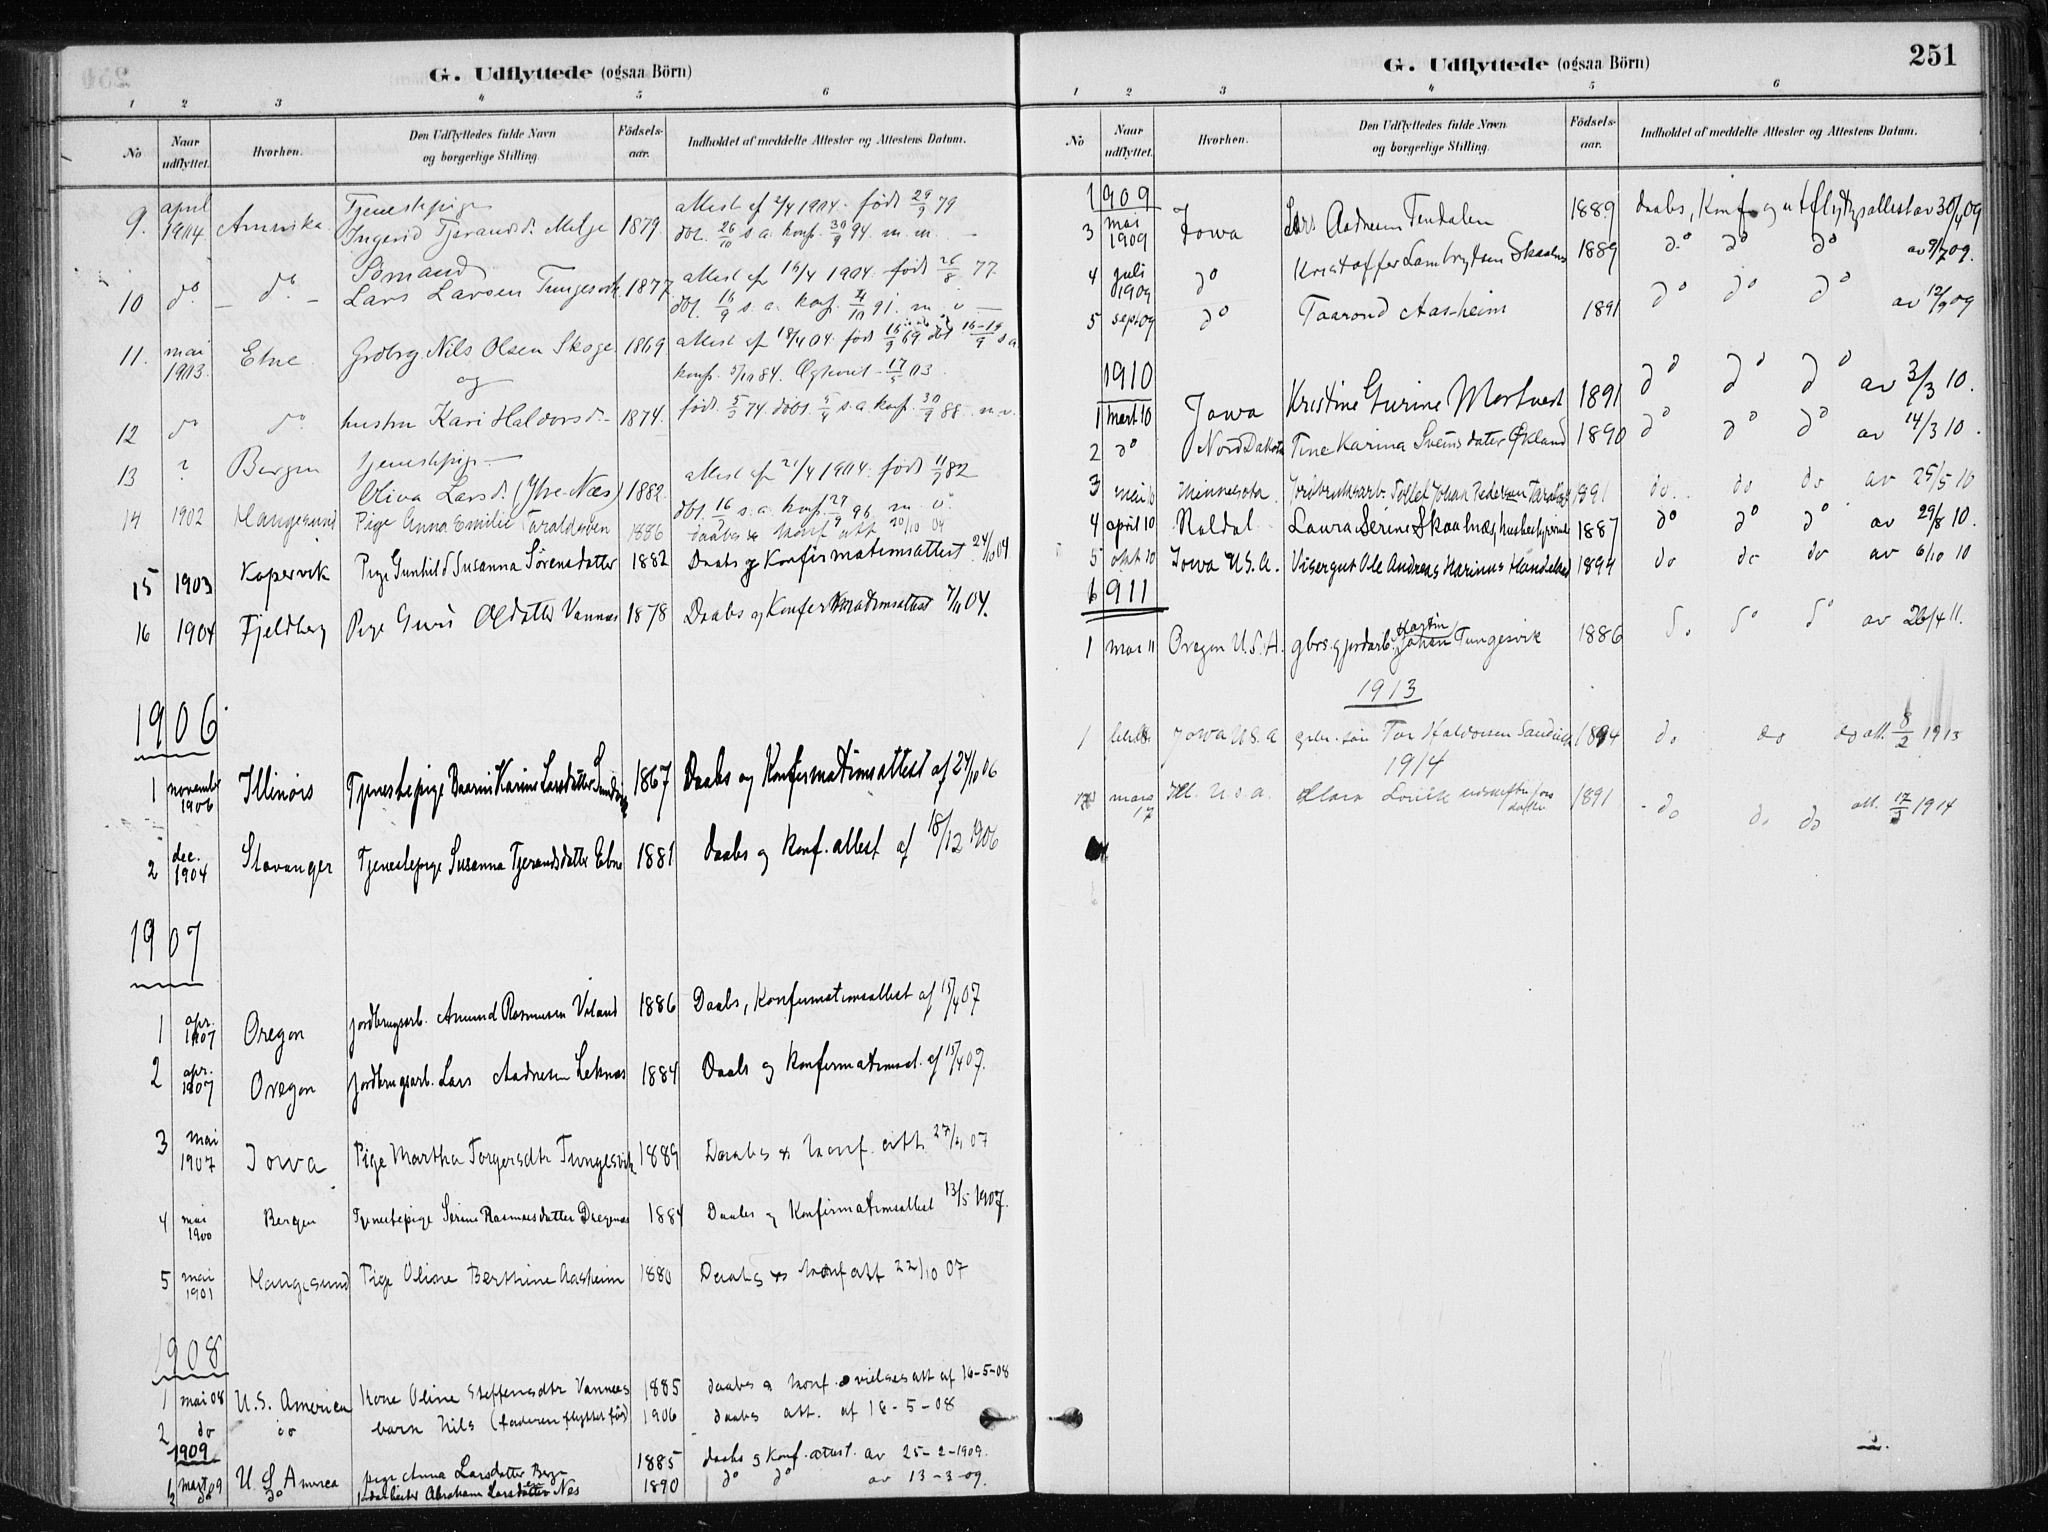 G. Udflyttede (ogsaa Börn)
1 2 3 4 5 6
No Naar udflyttet. Hvorhen. Den Udflyttedes fulde Navn og borgerlige Stilling. Födsels-aar. Indholdet af meddelte Attester og Attestens Datum.
9. april 1904. Amerika Tjenestepige Ingerid Tjerandsd. Melge 1879. attest af 2/4 1904. født 29/9 79
døb. 26/10 s. a. konf. 30/9 94. m. m.
10 do do Sömand Lars Larsen Tungesvik 1877 attest af 16/4 1904. født 26/8 77.
døb. 16/9 s. a. konf. 4/10 91. m. v.
11. mai 1903. Etne Grdbrg. Nils Olsen Skoge 1869 attest af 18/4 04. født 16/9 69 døbt 16-19/9 s. a.
og konf. 5/10 84. Ægteviet 17/5 03.
12 do do hustru Kari Haldorsd. 1874. født 5/3 74. døbt 5/4 s. a. konf. 30/9 88. m. v.
13 ? Bergen tjenestepige Oliva Larsd. (Ytre Næs) 1882. attest af 21/4 1904. født 11/9 82
døbt 16/ s. a. konf. 27/9 96 m. v.
14 1902 Haugesund Pige Anna Emilie Taraldsen 1886 daabs & konf att 20/10 04
15 1903 Kopervik Pige Gunhild Susanna Sörensdatter 1882 Daabs og Konfirmationsattest 24/10 04
16 1904 Fjeldberg Pige Guri Olsdatter Vannes 1878 Daabs og Konfirmationsattest 7/11 04.
1906
1 november 1906 Illinois Tjenestepige Baarni Karine Larsdatter 1867 Daabs og Konfirmationsattest af 24/10 06
2 dec. 1904 Stavanger Tjenestepige Susanna Tjerandsdatter Ebne 1881 daabs og konf. attest af 18/12 1906
1907
1 apr. 1907 Oregon jordbrugsarb. Amund Rasmussen Viland 1886 Daabs, Konfirmationsattest af 15/4 07
2 apr. 1907 Oregon jordbrugsarb. Lars Aadnesen Leknæs 1884 Daabs og konfirmationsat. af 15/4 07.
3 mai 1907 Iowa Pige Martha Torgersdtr Tungesvik 1889 Daabs & konf. att. 27/4 07
4 mai 1900 Bergen Tjenestepige Serine Rasmusdatter 1884 Daabs og Konfirmationsattest 13/5 1907.
5 mai 1901 Haugesund Pige Oline Berthine Aasheim 1880 Daabs & konf att 22/10 07
1908
1 mai 08 U.S. America Kone Oline Steffensdtr Vannes 1885 daabs & konf. & vielses att af 16-5-08
2 do do barn Nils (faderen flyttet før) 1906 daabs att. af 18-5-08
1909
1 mart 09 U. S. Amerca pige Anna Larsdatter Berge 1885 daabs & konf. attest. av 25-2-1909.
2 do do jordarbeider Abraham Larssøn Nes 1890 do do av 13-3-09.
251
G. Udflyttede (ogsaa Börn)
1 2 3 4 5 6
No Naar udflyttet. Hvorhen. Den Udflyttedes fulde Navn og borgerlige Stilling. Födsels-aar. Indholdet af meddelte Attester og Attestens Datum.
1909
3 mai 1909 Iowa Lars Aadnesen Tendalen 1889 daabs, Konf. og utflytgsattest av 30/4 09
4 juli 1909 do Kristoffer Lambrigtsen Skaalnes 1889 do do do av 9/7 09.
5 sept 09 do Taarond Aasheim 1891 do do do av 12/9 09
1910
1 mart 10 Iowa Kristine Gurine Mortvedt 1891 do do do av 3/3 10.
2 do Nord Dakota Tine Karina Sveinsdater Økland 1890 do do do av 14/3 10.
3 mai 10 Minnesota. Jordbruksarb. Tollef Johan Pedersen 1891 do. do do av 25/5 10
4 april 10 Røldal. Laura Serine Skaalnæs, husbestyrerinde 1887 do do do av 29/8 10.
5 okt 10 Iowa U.S.A. Visergut Ole Andreas Marinus Handeland 1894 do do do av 6/10 10
1911
1 mai 11 Oregon U.S.A. gbrs. g jordarb. Martin Johan Tungesvik 1886 do do do av 26/4 11.
1913
1 Iowa U.S.A gbr. søn Tor Haldorsen Sandvik 1894 do do do att. 8/2 1913
1914
1 mars 17 Ill. U.S.A. Clara 1891 do do do att. 17/3 1914